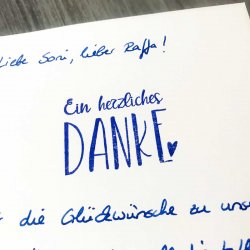 Liebe Soni, lieber Raffa!
Ein herzliches
DANKE
die Glückwünsche zu